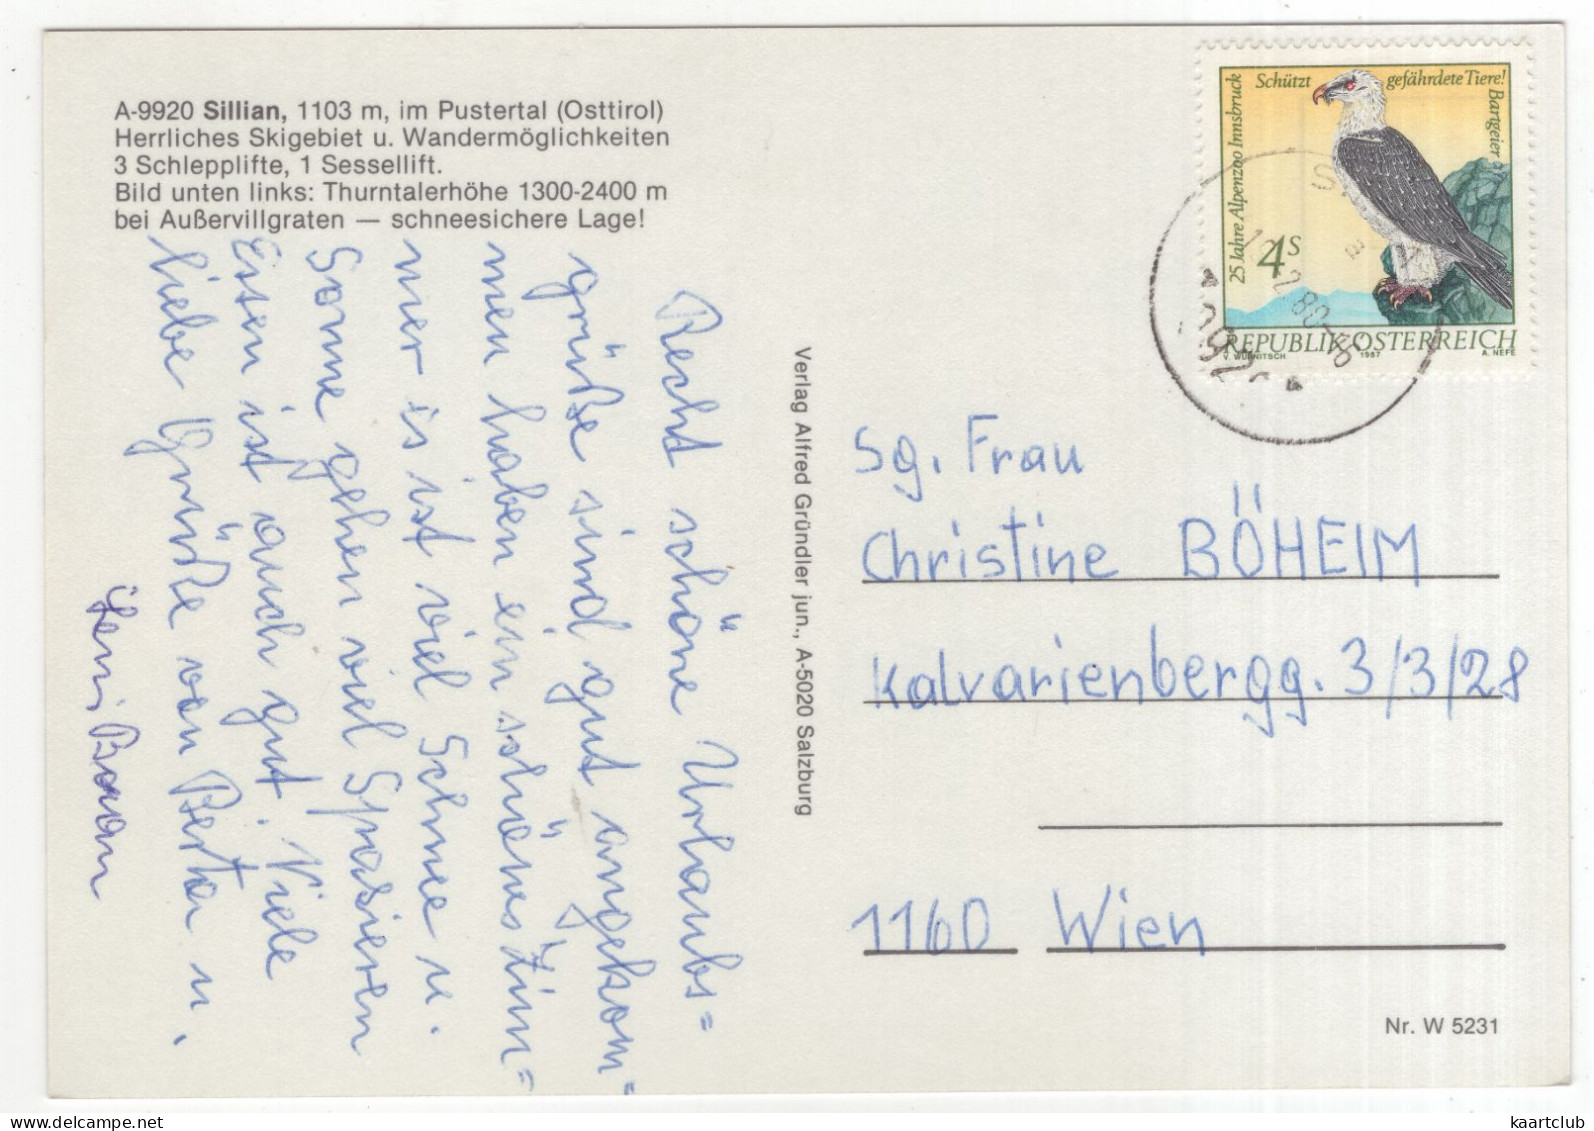 A-9920 Sillian, 1103 m, im Pustertal (Osttirol)
Herrliches Skigebiet u. Wandermöglichkeiten
3 Schlepplifte, 1 Sessellift.
Bild unten links: Thurntalerhöhe 1300-2400 m
bei Außervillgraten — schneesichere Lage!
Recht schöne Urlaubs=
grüße sind gut angekom=
men haben ein schönes Zim=
mer is ist viel Schnee u.
Sonne gehen viel Spasieren
Essen ist auch gut. Viele
liebe Grüße von Berta u.
Verlag Alfred Gründler jun., A-5020 Salzburg
25 Jahre Alpenzoo Innsbruck
Schützt gefährdete Tiere!
Bartgeier
4S
REPUBLIK ÖSTERREICH
V. WURNITSCH 1987 A. NEFE
Sg. Frau
Christine BÖHEIM
Kalvarienbergg. 3/3/28
1160 Wien
Nr. W 5231
kaartclub
delcampe.net